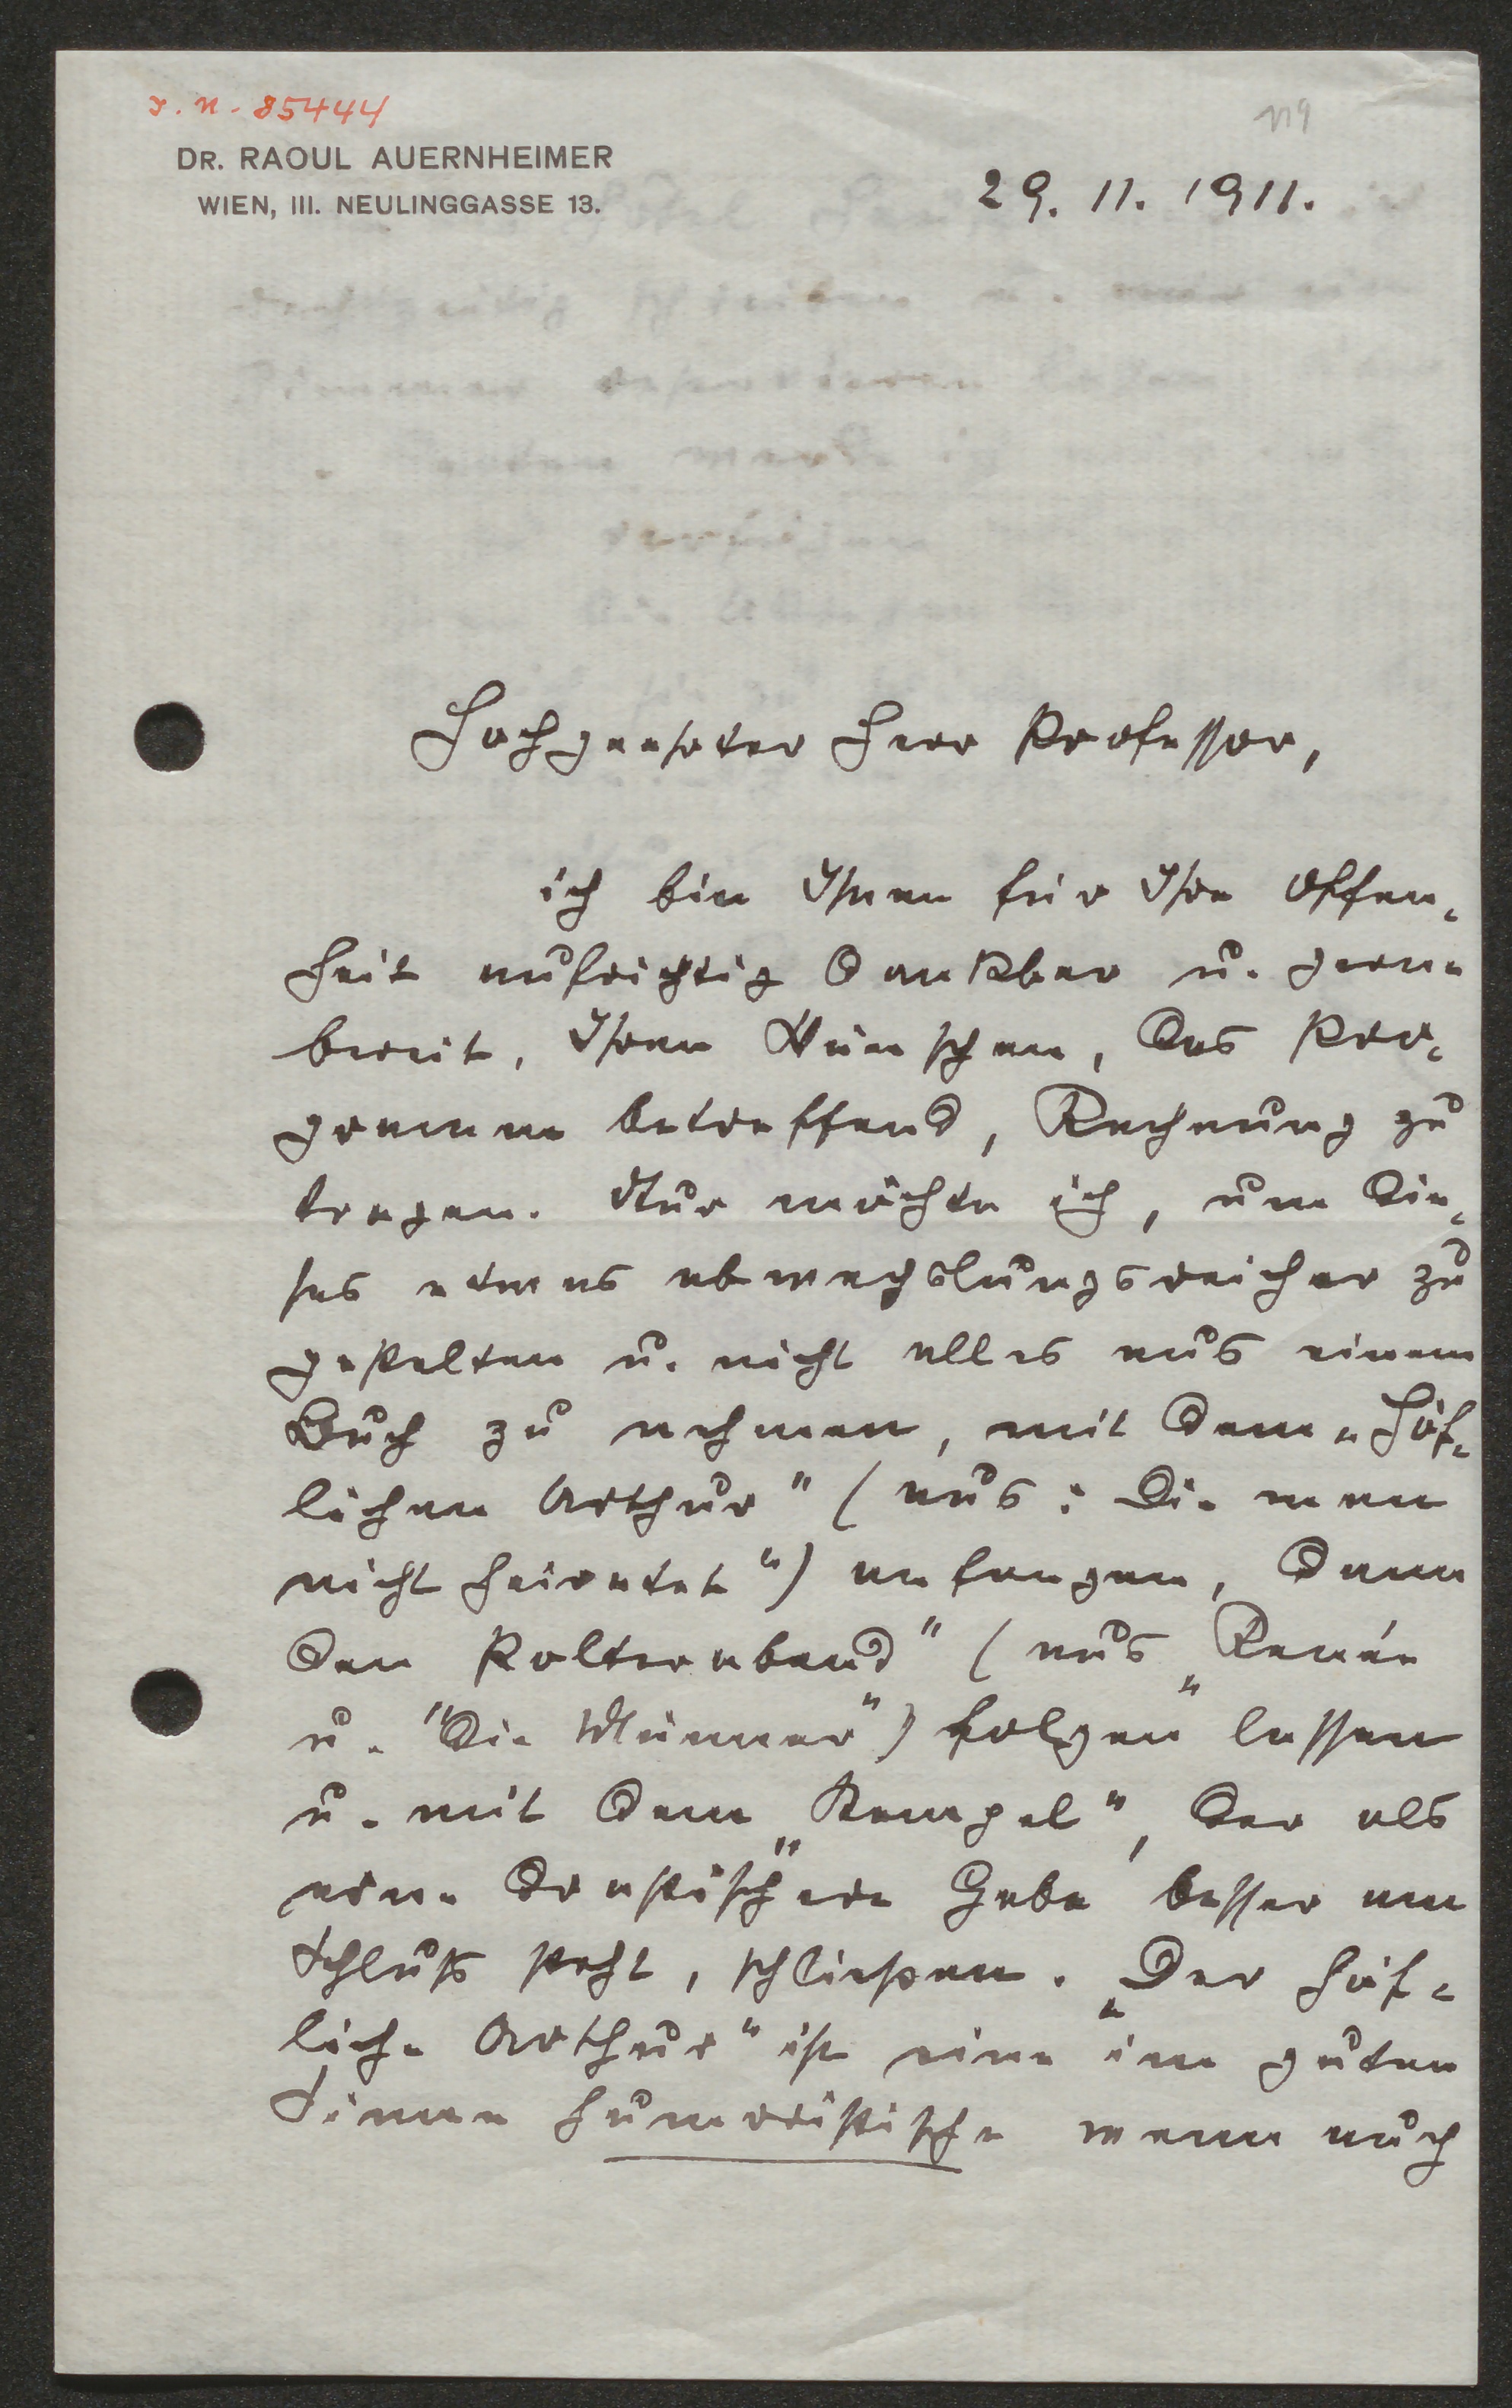 I.N. 85444
119
DR. RAOUL AUERNHEIMER
WIEN, III. NEULINGGASSE 13.
29. 11. 1911.
Hochgeehrter Herr Professor,
ich bin Ihnen für Ihre Offen-
heit aufrichtig dankbar u. gerne
bereit, Ihren Wünschen, das Pro-
gramm betreffend, Rechnung zu
tragen. Nur möchte ich, um die-
ses etwas abwechslungsreicher zu
gestalten u. nicht alles aus einem
Buch zu nehmen, mit dem „Höf-
lichen Arthur" (aus: Die man
nicht heiratet") anfangen, dann
den Polterabend" (aus „Renée
u. "Die Männer") folgen lassen
u. mit dem „Tempel", der als
eine drastischere Gabe besser am
Schluß steht, schließen. „Der höf-
liche Arthur" ist eine im guten
Sinne humoristische wenn auch